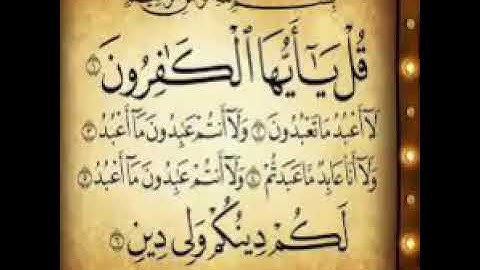 قُلْ يَٰٓأَيُّهَا ٱلْكَٰفِرُونَ ١
لَآ أَعْبُدُ مَا تَعْبُدُونَ ٢ وَلَآ أَنتُمْ عَٰبِدُونَ مَآ أَعْبُدُ ٣
وَلَآ أَنَا۠ عَابِدٌ مَّا عَبَدتُّمْ ٤ وَلَآ أَنتُمْ عَٰبِدُونَ مَآ أَعْبُدُ ٥
لَكُمْ دِينُكُمْ وَلِىَ دِينِ ٦